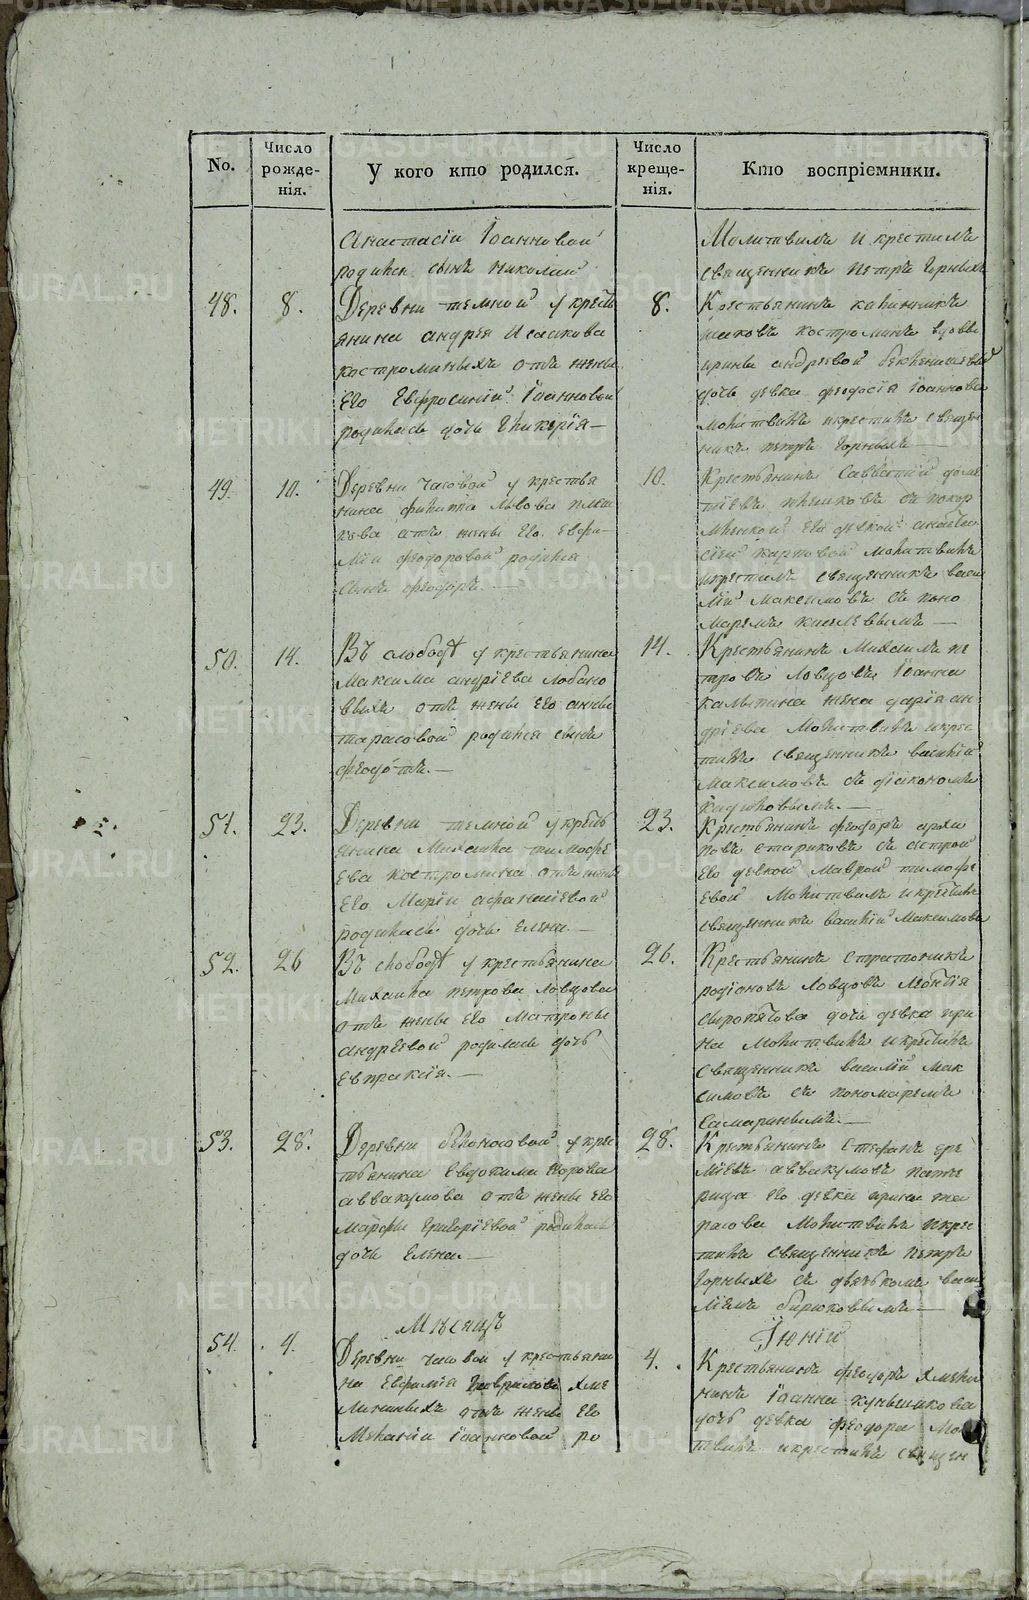 No.
Число рожде-нія.
У кого кто родился.
Число креще-нія.
Кто воспріємники.
Анастасіи Іоанновой
родился сынъ Николай
Молитвилъ и крестилъ
священникъ Петръ Горныхъ
48. 8.
Деревни темной у кресть
янина андрея Исаакова
костроминыхъ отъ жены
Его Евфросиніи Іоанновой
родилась дочь Гликерія—
8.
Крестьянинъ
іаковъ костроминъ вдовы
ирины андреевой
дочь девка феодосія Іоаннова
молитвилъ и крестилъ священ
никъ петръ Горныхъ —
49. 10.
Деревни часовой у крестья
нина филипа Львова
отъ жены Его Евфи
міи феодоровой родился
сынъ феодоръ. —
10.
Крестьянинъ Савватій
съ
Его девкой
молитвилъ
и крестилъ священникъ васи
лій Максимовъ съ поно
маремъ киселевымъ —
50. 14.
Въ слободѣ у крестьянина
Максима андріева Лобано
выхъ отъ жены его анны
тарасовой родился сынъ
феодотъ. —
14.
Крестьянинъ Михаилъ пе
тровъ Ловцовъ Іоанна
жена дарія ан
дріева молитвилъ и крес
тилъ священникъ василій
Максимовъ съ діакономъ
51. 23.
Деревни темной у кресть
янина Михаила тимофе
ева костромина отъ жены
Его Маріи афанасіевой
родилась дочь Елена. —
23.
Крестьянинъ феодоръ архи
повъ стариковъ съ сестрой
Его девкой маврой тимофе
евой молитвилъ и крестилъ
священникъ василій Максимовъ
52. 26
Въ слободѣ у крестьянина
Михаила петрова Ловцова
отъ жены Его Матроны
андреевой родилась дочь
Евпраксія. —
26.
Крестьянинъ Стратоникъ
родіоновъ Ловцовъ Леонтія
сыропятова дочь девка ири
на молитвилъ и крестилъ
священникъ василій мак
симовъ съ пономаремъ
самаринымъ. —
53. 28.
Деревни белоносовой у крес
тьянина Евдокима Егорова
аввакумова отъ жены Его
марфы григоріевой родилась
дочь Елена. —
28.
Крестьянинъ Стефанъ ере
міевъ аввакумовъ
Его девка ирина та
расова молитвилъ и крес
тилъ священникъ петръ
Горныхъ съ дьячкомъ васи
ліемъ бирюковымъ —
Мѣсяцъ
Іюній
54. 4.
Деревни часовой у крестьяни
на Евфимія Гаврилова хме
лининыхъ отъ жены Его
Меланіи Іоанновой ро
4.
Крестьянинъ феодоръ хмели
нинъ Іоанна куньщикова
дочь девка феодора мо
твилъ и крестилъ священ
METRIKI.GASO-URAL.RU